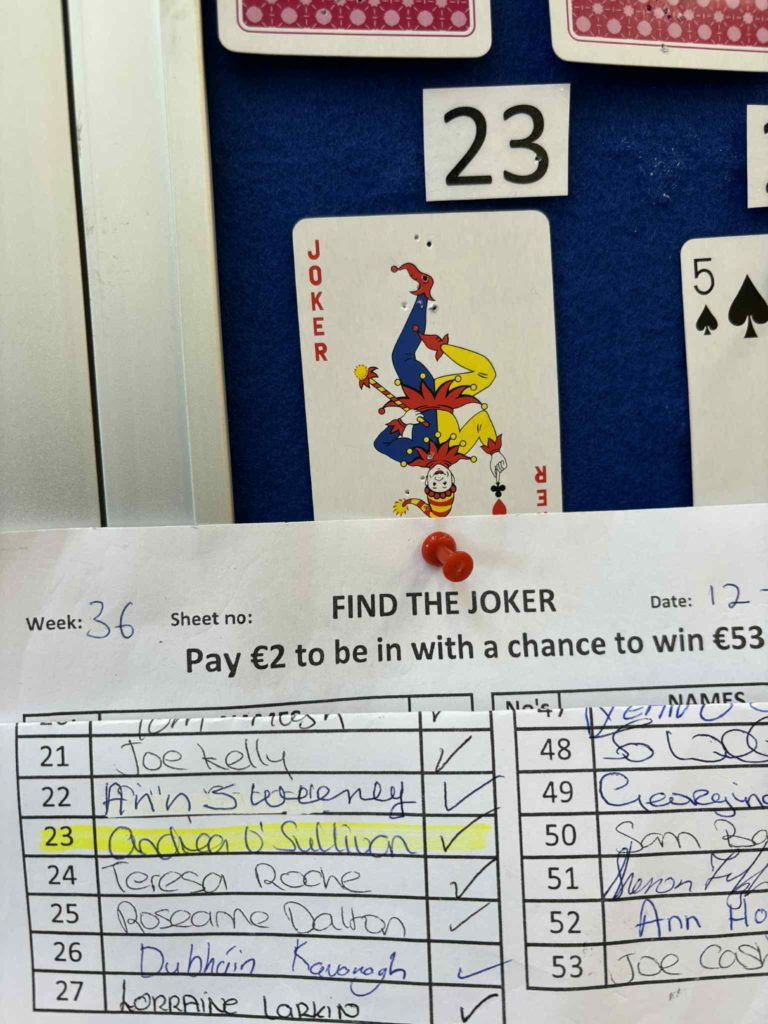 23
JOKER
5
ER
Week: 36 Sheet no: FIND THE JOKER Date: 12-
Pay €2 to be in with a chance to win €53
No's NAMES
21 Joe Kelly ✓
22 Ann Sweeney ✓
23 Andrea O'Sullivan ✓
24 Teresa Roche ✓
25 Roseanne Dalton ✓
26 Dubháin Kavanagh ✓
27 LORRAINE LARKIN ✓
48
49 Georgina
50 Sam
51
52 Ann Ho
53 Joe Cash